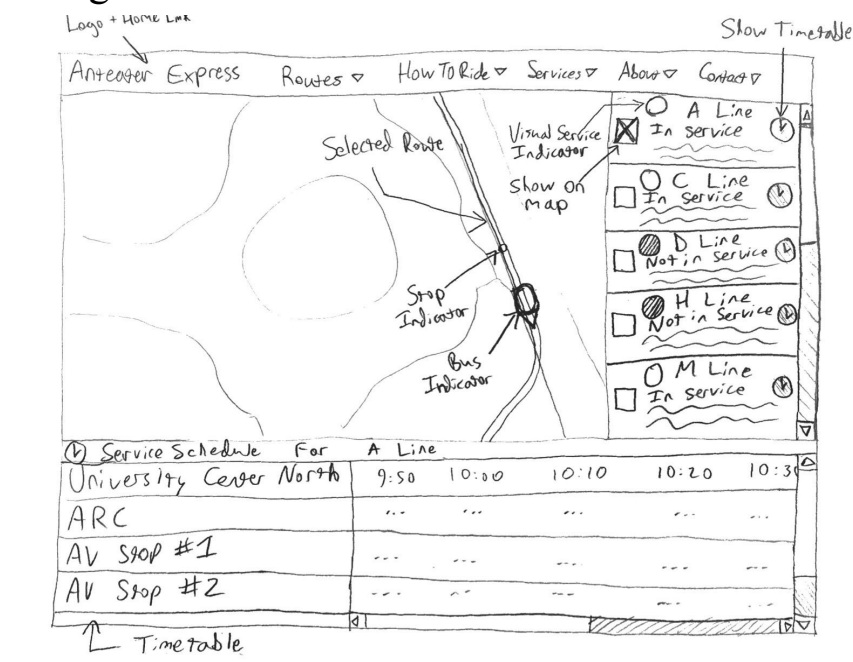 Logo + Home Link
Show Timetable
Anteater Express
Routes
How To Ride
Services
About
Contact
Selected Route
Visual Service
Indicator
Show on
map
Stop
Indicator
Bus
Indicator
A Line
In service
C Line
In service
D Line
Not in service
H Line
Not in service
M Line
In service
Service Schedule For A Line
University Center North 9:50 10:00 10:10 10:20 10:30
ARC
AV Stop #1
AV Stop #2
Timetable